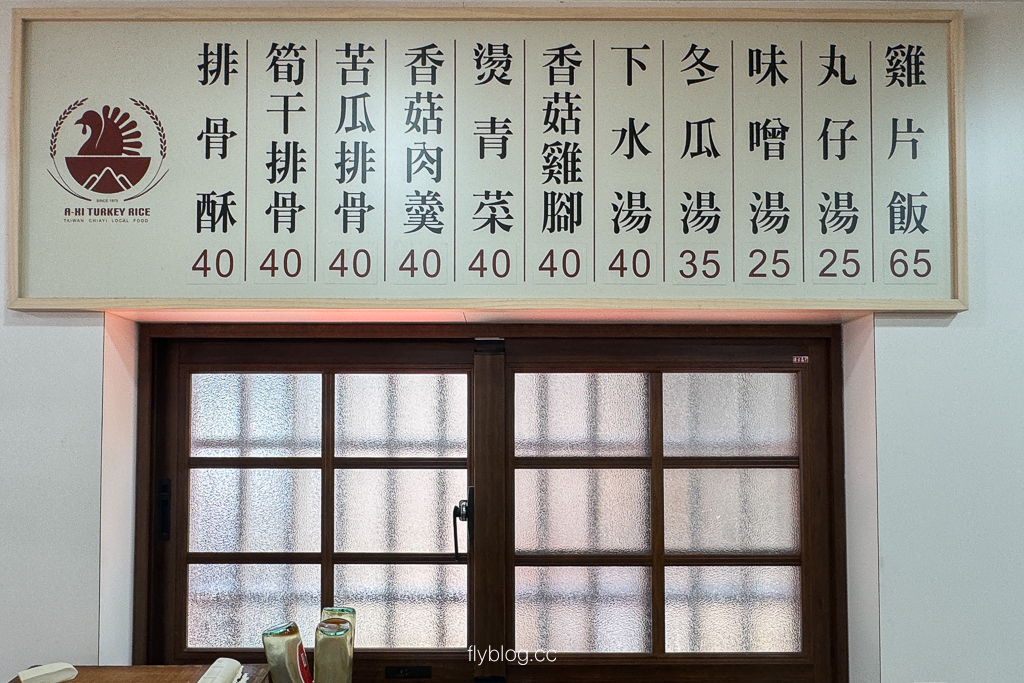 雞片飯 65
丸仔湯 25
味噌湯 25
冬瓜湯 35
下水湯 40
香菇雞腳 40
燙青菜 40
香菇肉羹 40
苦瓜排骨 40
筍干排骨 40
排骨酥 40
SINCE 1973
A-XI TURKEY RICE
TAIWAN CHIAYI LOCAL FOOD
flyblog.cc